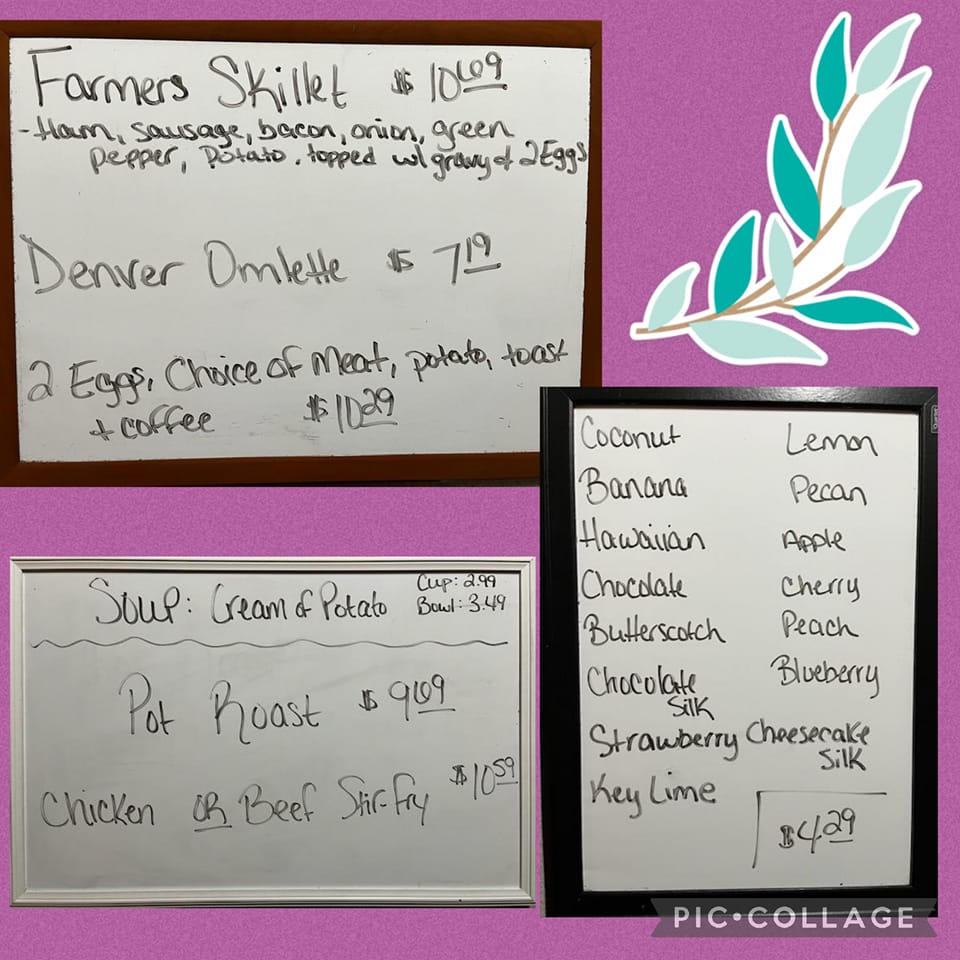 Farmers Skillet $10.69
- Ham, sausage, bacon, onion, green
pepper, potato. topped w/ gravy & 2 Eggs
Denver Omlette $7.19
2 Eggs, Choice of Meat, potato, toast
+ coffee $10.29
Soup: Cream of Potato
Cup: 2.99
Bowl: 3.49
Pot Roast $9.69
Chicken OR Beef Stir-Fry $10.59
Coconut
Banana
Hawaiian
Chocolate
Butterscotch
Chocolate
Silk
Strawberry Cheesecake
Silk
Key Lime
Lemon
Pecan
Apple
Cherry
Peach
Blueberry
$4.29
PIC•COLLAGE